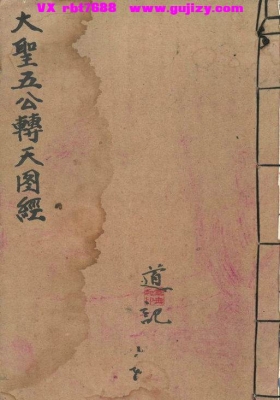 VX rbt7688    www.gujizy.com
大聖五公轉天图經
道記